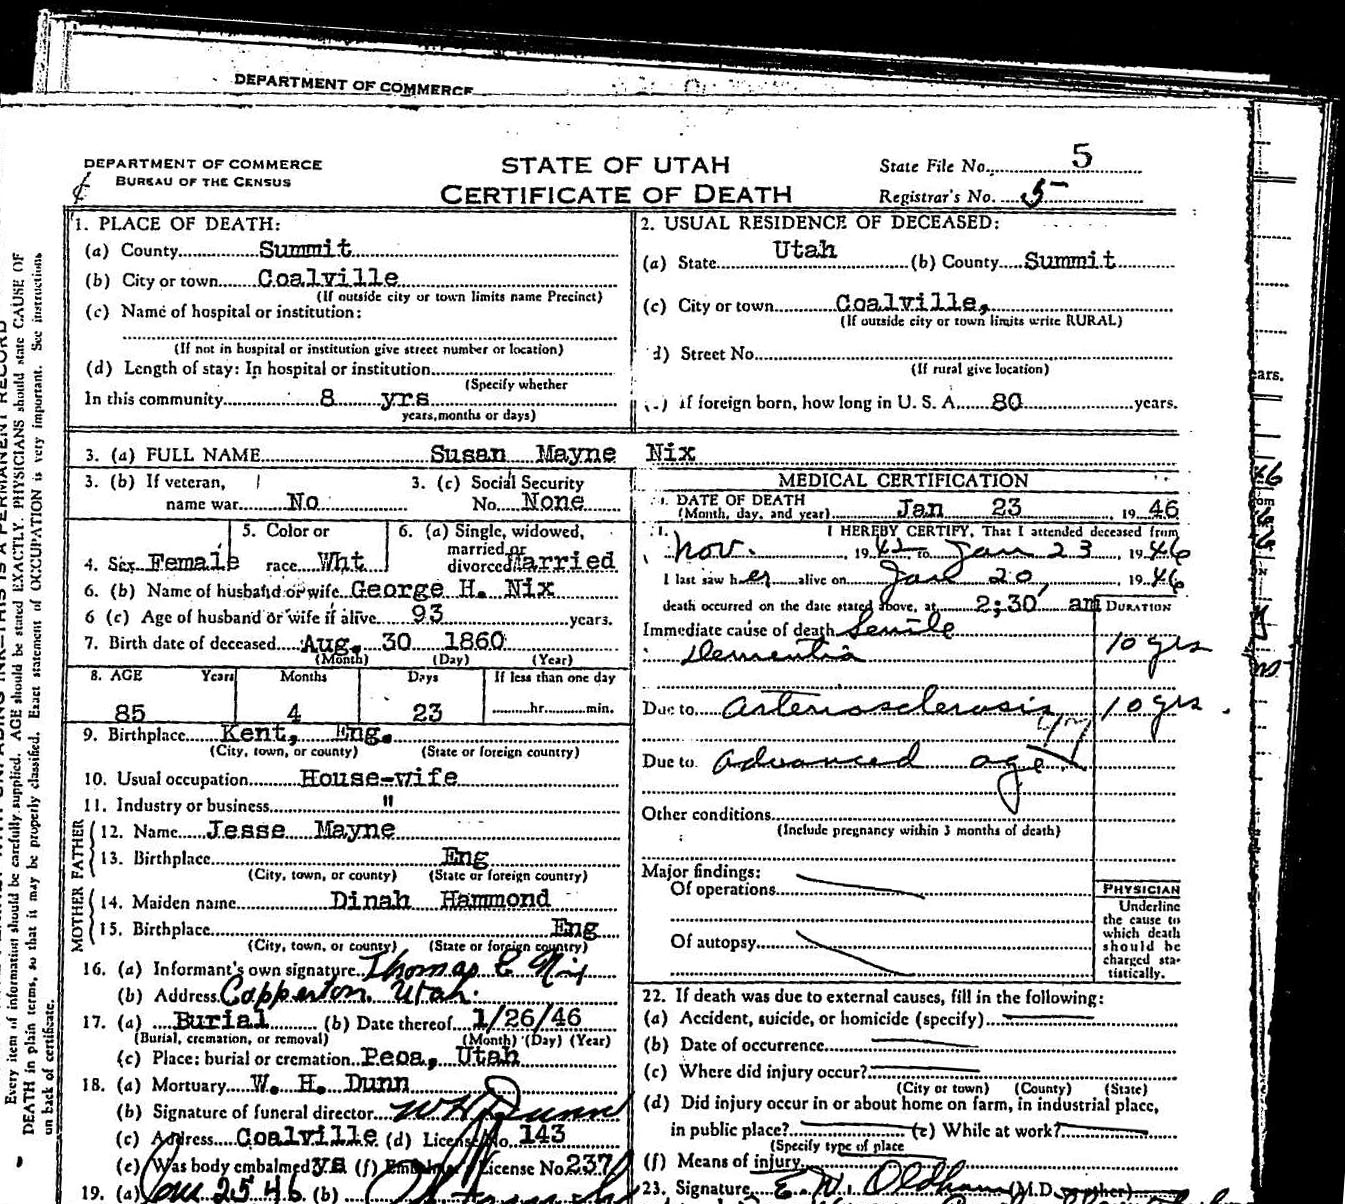 DEPARTMENT OF COMMERCE
DEPARTMENT OF COMMERCE
BUREAU OF THE CENSUS
STATE OF UTAH
CERTIFICATE OF DEATH
State File No. 5
Registrar's No. 5
Every item of information should be carefully supplied. AGE should be stated EXACTLY. PHYSICIANS should state CAUSE OF
DEATH in plain terms, so that it may be properly classified. Exact statement of OCCUPATION is very important. See instructions
on back of certificate.
1. PLACE OF DEATH:
(a) County Summit
(b) City or town Coalville
(If outside city or town limits name Precinct)
(c) Name of hospital or institution:
(If not in hospital or institution give street number or location)
(d) Length of stay: In hospital or institution
(Specify whether
In this community 8 yrs
years, months or days)
2. USUAL RESIDENCE OF DECEASED:
(a) State Utah (b) County Summit
(c) City or town Coalville,
(If outside city or town limits write RURAL)
d) Street No.
(If rural give location)
if foreign born, how long in U. S. A. 80 years.
3. (a) FULL NAME Susan Mayne Nix
3. (b) If veteran,
name war No
3. (c) Social Security
No. None
4. Sex Female
5. Color or
race Wht
6. (a) Single, widowed,
married or
divorced Married
6. (b) Name of husband or wife George H. Nix
6 (c) Age of husband or wife if alive 93 years.
7. Birth date of deceased Aug. 30 1860
(Month) (Day) (Year)
8. AGE Years Months Days If less than one day
85 4 23 hr. min.
9. Birthplace Kent, Eng.
(City, town, or county) (State or foreign country)
10. Usual occupation House-wife
11. Industry or business "
FATHER
12. Name Jesse Mayne
13. Birthplace Eng
(City, town, or county) (State or foreign country)
MOTHER
14. Maiden name Dinah Hammond
15. Birthplace Eng
(City, town, or county) (State or foreign country)
16. (a) Informant's own signature Thomas E Nix
(b) Address Copperton, Utah.
17. (a) Burial (b) Date thereof 1/26/46
(Burial, cremation, or removal) (Month) (Day) (Year)
(c) Place: burial or cremation Peoa, Utah
18. (a) Mortuary W. H. Dunn
(b) Signature of funeral director W H Dunn
(c) Address Coalville (d) License No. 143
(e) Was body embalmed yes (f) Embalmer's License No 237
19. (a) Jan 25 46 (b)
MEDICAL CERTIFICATION
DATE OF DEATH
(Month, day, and year) Jan 23, 19 46
I HEREBY CERTIFY, That I attended deceased from
Nov., 19 42 to Jan 23, 19 46
I last saw her alive on Jan 20, 19 46
death occurred on the date stated above, at 2;30 am
DURATION
Immediate cause of death Senile
Dementia 10 yrs
Due to arteriosclerosis 10 yrs.
Due to advanced age
Other conditions
(Include pregnancy within 3 months of death)
Major findings:
Of operations
Of autopsy
PHYSICIAN
Underline
the cause to
which death
should be
charged sta-
tistically.
22. If death was due to external causes, fill in the following:
(a) Accident, suicide, or homicide (specify)
(b) Date of occurrence
(c) Where did injury occur?
(City or town) (County) (State)
(d) Did injury occur in or about home on farm, in industrial place,
in public place? (e) While at work?
(Specify type of place
(f) Means of injury
23. Signature E. W. Oldham (M.D. or other)